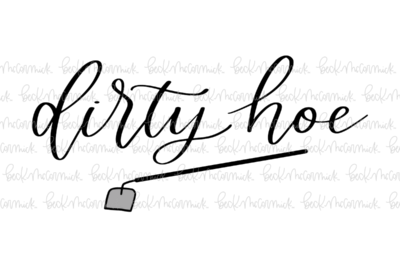 dirty hoe